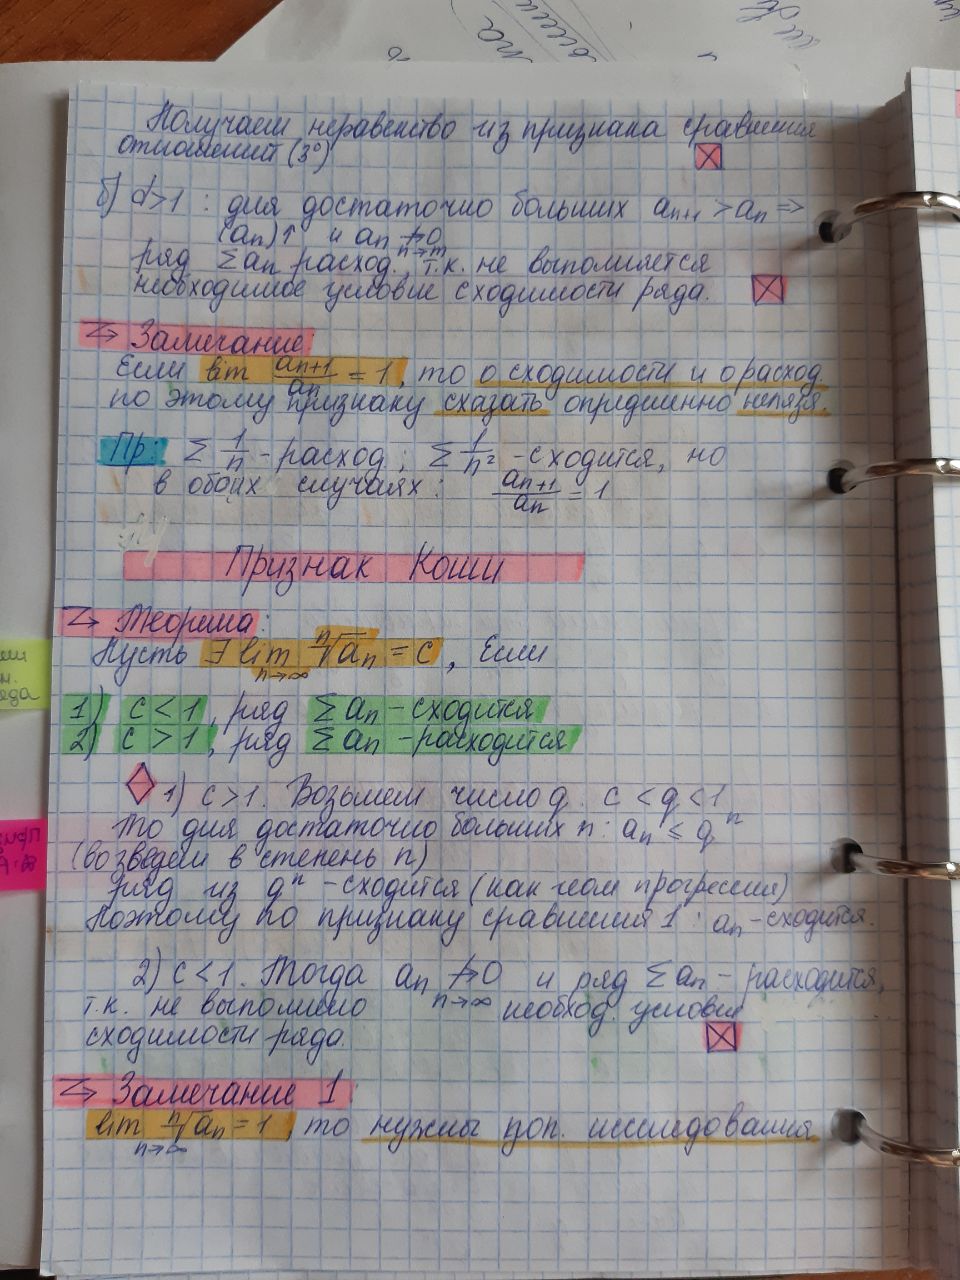 Получаем неравенство из признака сравнения
отношений (3°)
б) d>1 : для достаточно больших aₙ₊₁ > aₙ ⇒
(aₙ)↑ и aₙ ↛ 0
n→∞
ряд Σaₙ расход., т.к. не выполняется
необходимое условие сходимости ряда.
Замечание:
Если lim aₙ₊₁/aₙ = 1, то о сходимости и о расход
по этому признаку сказать определенно нельзя.
Пр: Σ 1/n - расход; Σ 1/n² - сходится, но
в обоих случаях: aₙ₊₁/aₙ = 1
Признак Коши
Теорема:
Пусть ∃ lim ⁿ√aₙ = c, Если
n→∞
1) c < 1, ряд Σaₙ - сходится
2) c > 1, ряд Σaₙ - расходится
1) c > 1. Возьмем число q. c < q < 1
То для достаточно больших n: aₙ ≤ qⁿ
(возведем в степень n)
Ряд из qⁿ - сходится (как геом прогрессия)
Поэтому по признаку сравнения 1: aₙ - сходится.
2) c < 1. Тогда aₙ ↛ 0 и ряд Σaₙ - расходится,
n→∞
т.к. не выполнено необход. условие
сходимости ряда.
Замечание 1
lim ⁿ√aₙ = 1, то нужны доп. исследования
n→∞